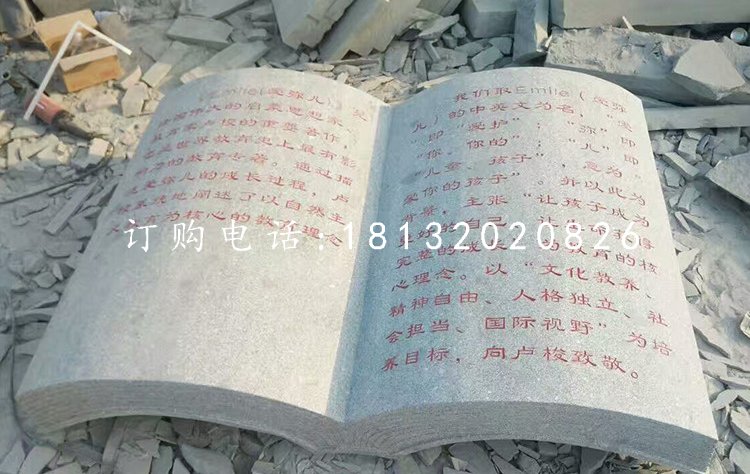 Emile(爱弥儿)是
法国伟大的启蒙思想家
教育家卢梭的重要著作,
也是世界教育史上最有影
响力的教育专著。通过描
述爱弥儿的成长过程,卢
梭系统地阐述了以自然主
教育为核心的教育理念
我们取Emile(爱弥
儿)的中英文为名,“爱
”即“爱护”;“弥”即
“你、你的”;“儿”即
“儿童、孩子”,意为“
爱你的孩子”。并以此为
背景,主张“让孩子成为
的自己,让
完整的成 为教育的核
心理念。以“文化教养、
精神自由、人格独立、社
会担当、国际视野”为培
养目标,向卢梭致敬。
订购电话:18132020826